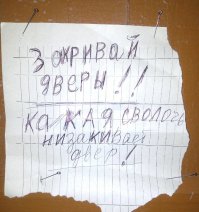 Закривай
двери!!
Какая сволочь
низакивает
двер!